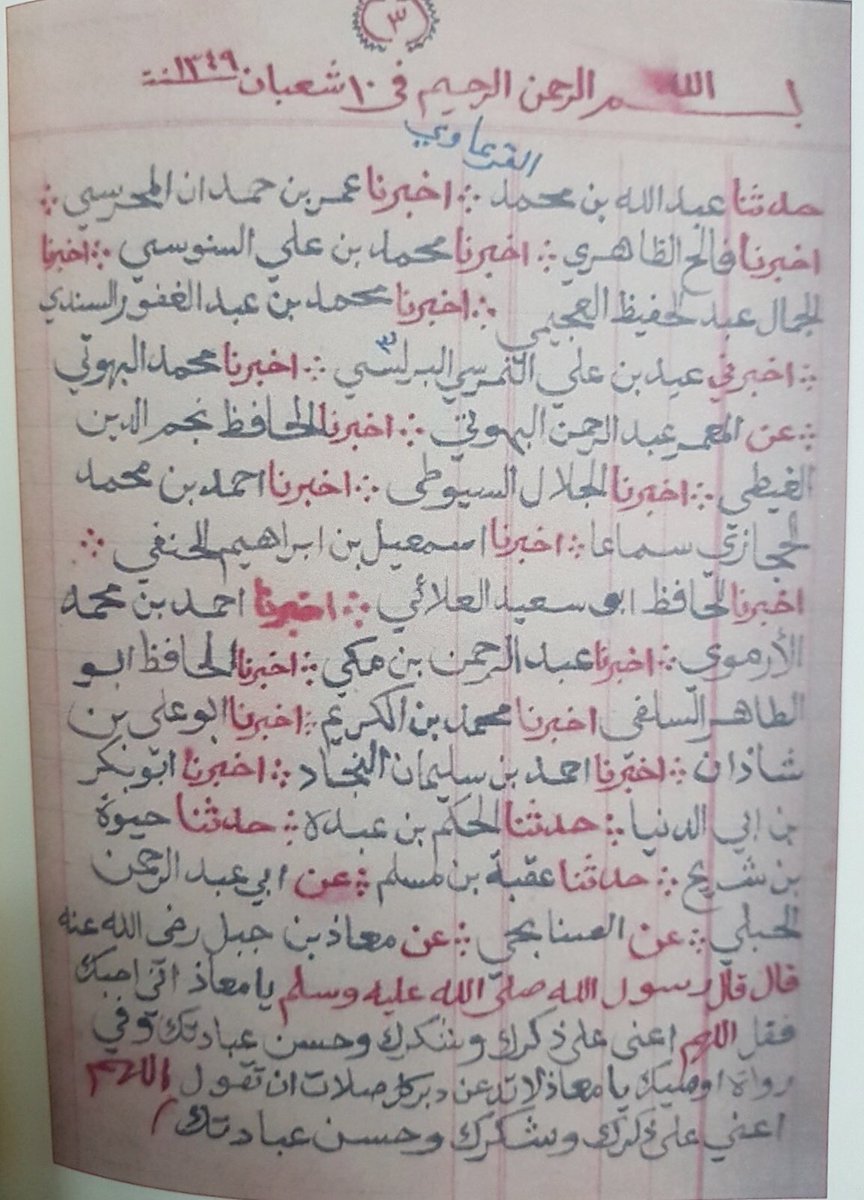 ٣
بسم الله الرحمن الرحيم في ١٠ شعبان سنة ١٣٤٩
القرعاوي
حدثنا عبد الله بن محمد ∴ اخبرنا عمر بن حمدان المحرسي ∴
اخبرنا فالح الظاهري ∴ اخبرنا محمد بن علي السنوسي ∴ اخبرنا
الجمال عبد الحفيظ العجيمي ∴ اخبرنا محمد بن عبد الغفور السندي
∴ اخبرني عيد بن علي النمرسي البرلسي ∴ اخبرنا محمد البهوتي
∴ عن المعمر عبد الرحمن البهوتي ∴ اخبرنا الحافظ نجم الدين
الغيطي ∴ اخبرنا الجلال السيوطي ∴ اخبرنا احمد بن محمد
الحجازي سماعا ∴ اخبرنا اسمعيل بن ابراهيم الحنفي ∴
اخبرنا الحافظ ابو سعيد العلائي ∴ اخبرنا احمد بن محمد
الأرموي ∴ اخبرنا عبد الرحمن بن مكي ∴ اخبرنا الحافظ ابو
الطاهر السلفي اخبرنا محمد بن الكريم ∴ اخبرنا ابو علي بن
شاذان ∴ اخبرنا احمد بن سليمان النجاد ∴ اخبرنا ابو بكر
بن ابي الدنيا ∴ حدثنا الحكم بن عبدة ∴ حدثنا حيوة
بن شريح ∴ حدثنا عقبة بن مسلم ∴ عن ابي عبد الرحمن
الحبلي ∴ عن الصنابحي ∴ عن معاذ بن جبل رضى الله عنه
قال قال رسول الله صلى الله عليه وسلم يا معاذ اني احبك
فقل اللهم اعني على ذكرك وشكرك وحسن عبادتك وفي
رواة اوصيك يا معاذ لا تدعن دبر كل صلات ان تقول اللهم
اعني على ذكرك وشكرك وحسن عبادتك